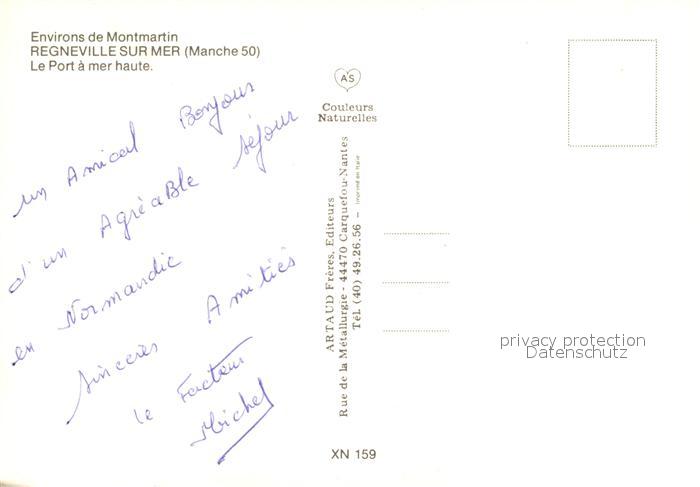 Environs de Montmartin
REGNEVILLE SUR MER (Manche 50)
Le Port à mer haute.
un Amical Bonjour
d'un Agréable séjour
en Normandie
Sincères Amitiés
le Facteur
Michel
A S
Couleurs
Naturelles
ARTAUD Frères, Editeurs
Rue de la Métallurgie - 44470 Carquefou-Nantes
Tél. (40) 49.26.56 - Imprimé en Italie
XN 159
privacy protection
Datenschutz